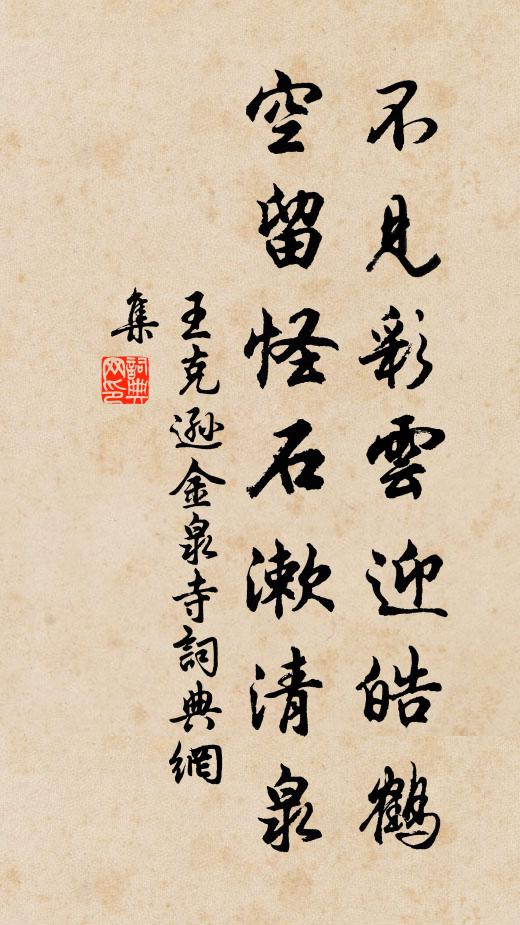 不見彩雲迎皓鶴
空留怪石漱清泉
王克遜金泉寺詞典網
集
詞典網印